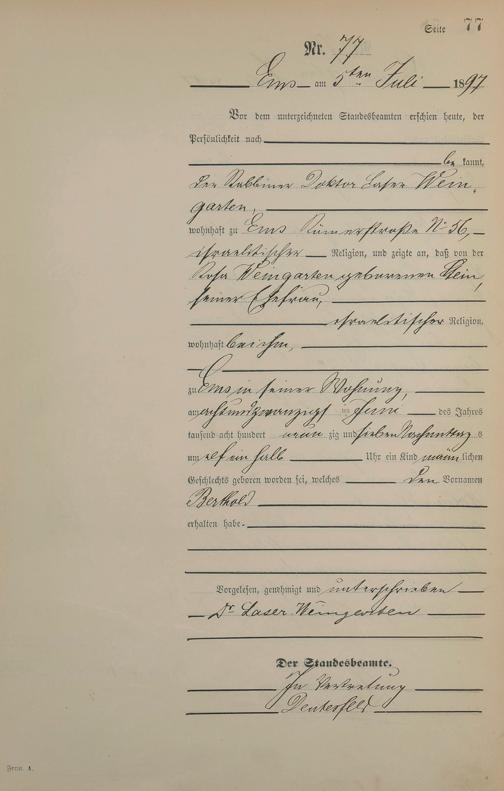 Seite 77
Nr. 77
Ems am 5ten Juli 1897
Vor dem unterzeichneten Standesbeamten erschien heute, der
Persönlichkeit nach
be kannt,
der Rabbiner Doktor Laser Wein-
garten,
wohnhaft zu Ems Römerstraße No 56,
israelitischer Religion, und zeigte an, daß von der
Rosa Weingarten geborenen Klein,
seiner Ehefrau,
israelitischer Religion,
wohnhaft bei ihm,
zu Ems in seiner Wohnung,
am achtundzwanzigsten Juni des Jahres
tausend acht hundert neun zig und sieben Nachmittag s
um elf ein halb Uhr ein Kind männ lichen
Geschlechts geboren worden sei, welches den Vornamen
Berthold
erhalten habe.
Vorgelesen, genehmigt und unterschrieben
Dr Laser Weingarten
Der Standesbeamte.
In Vertretung
Form. A.